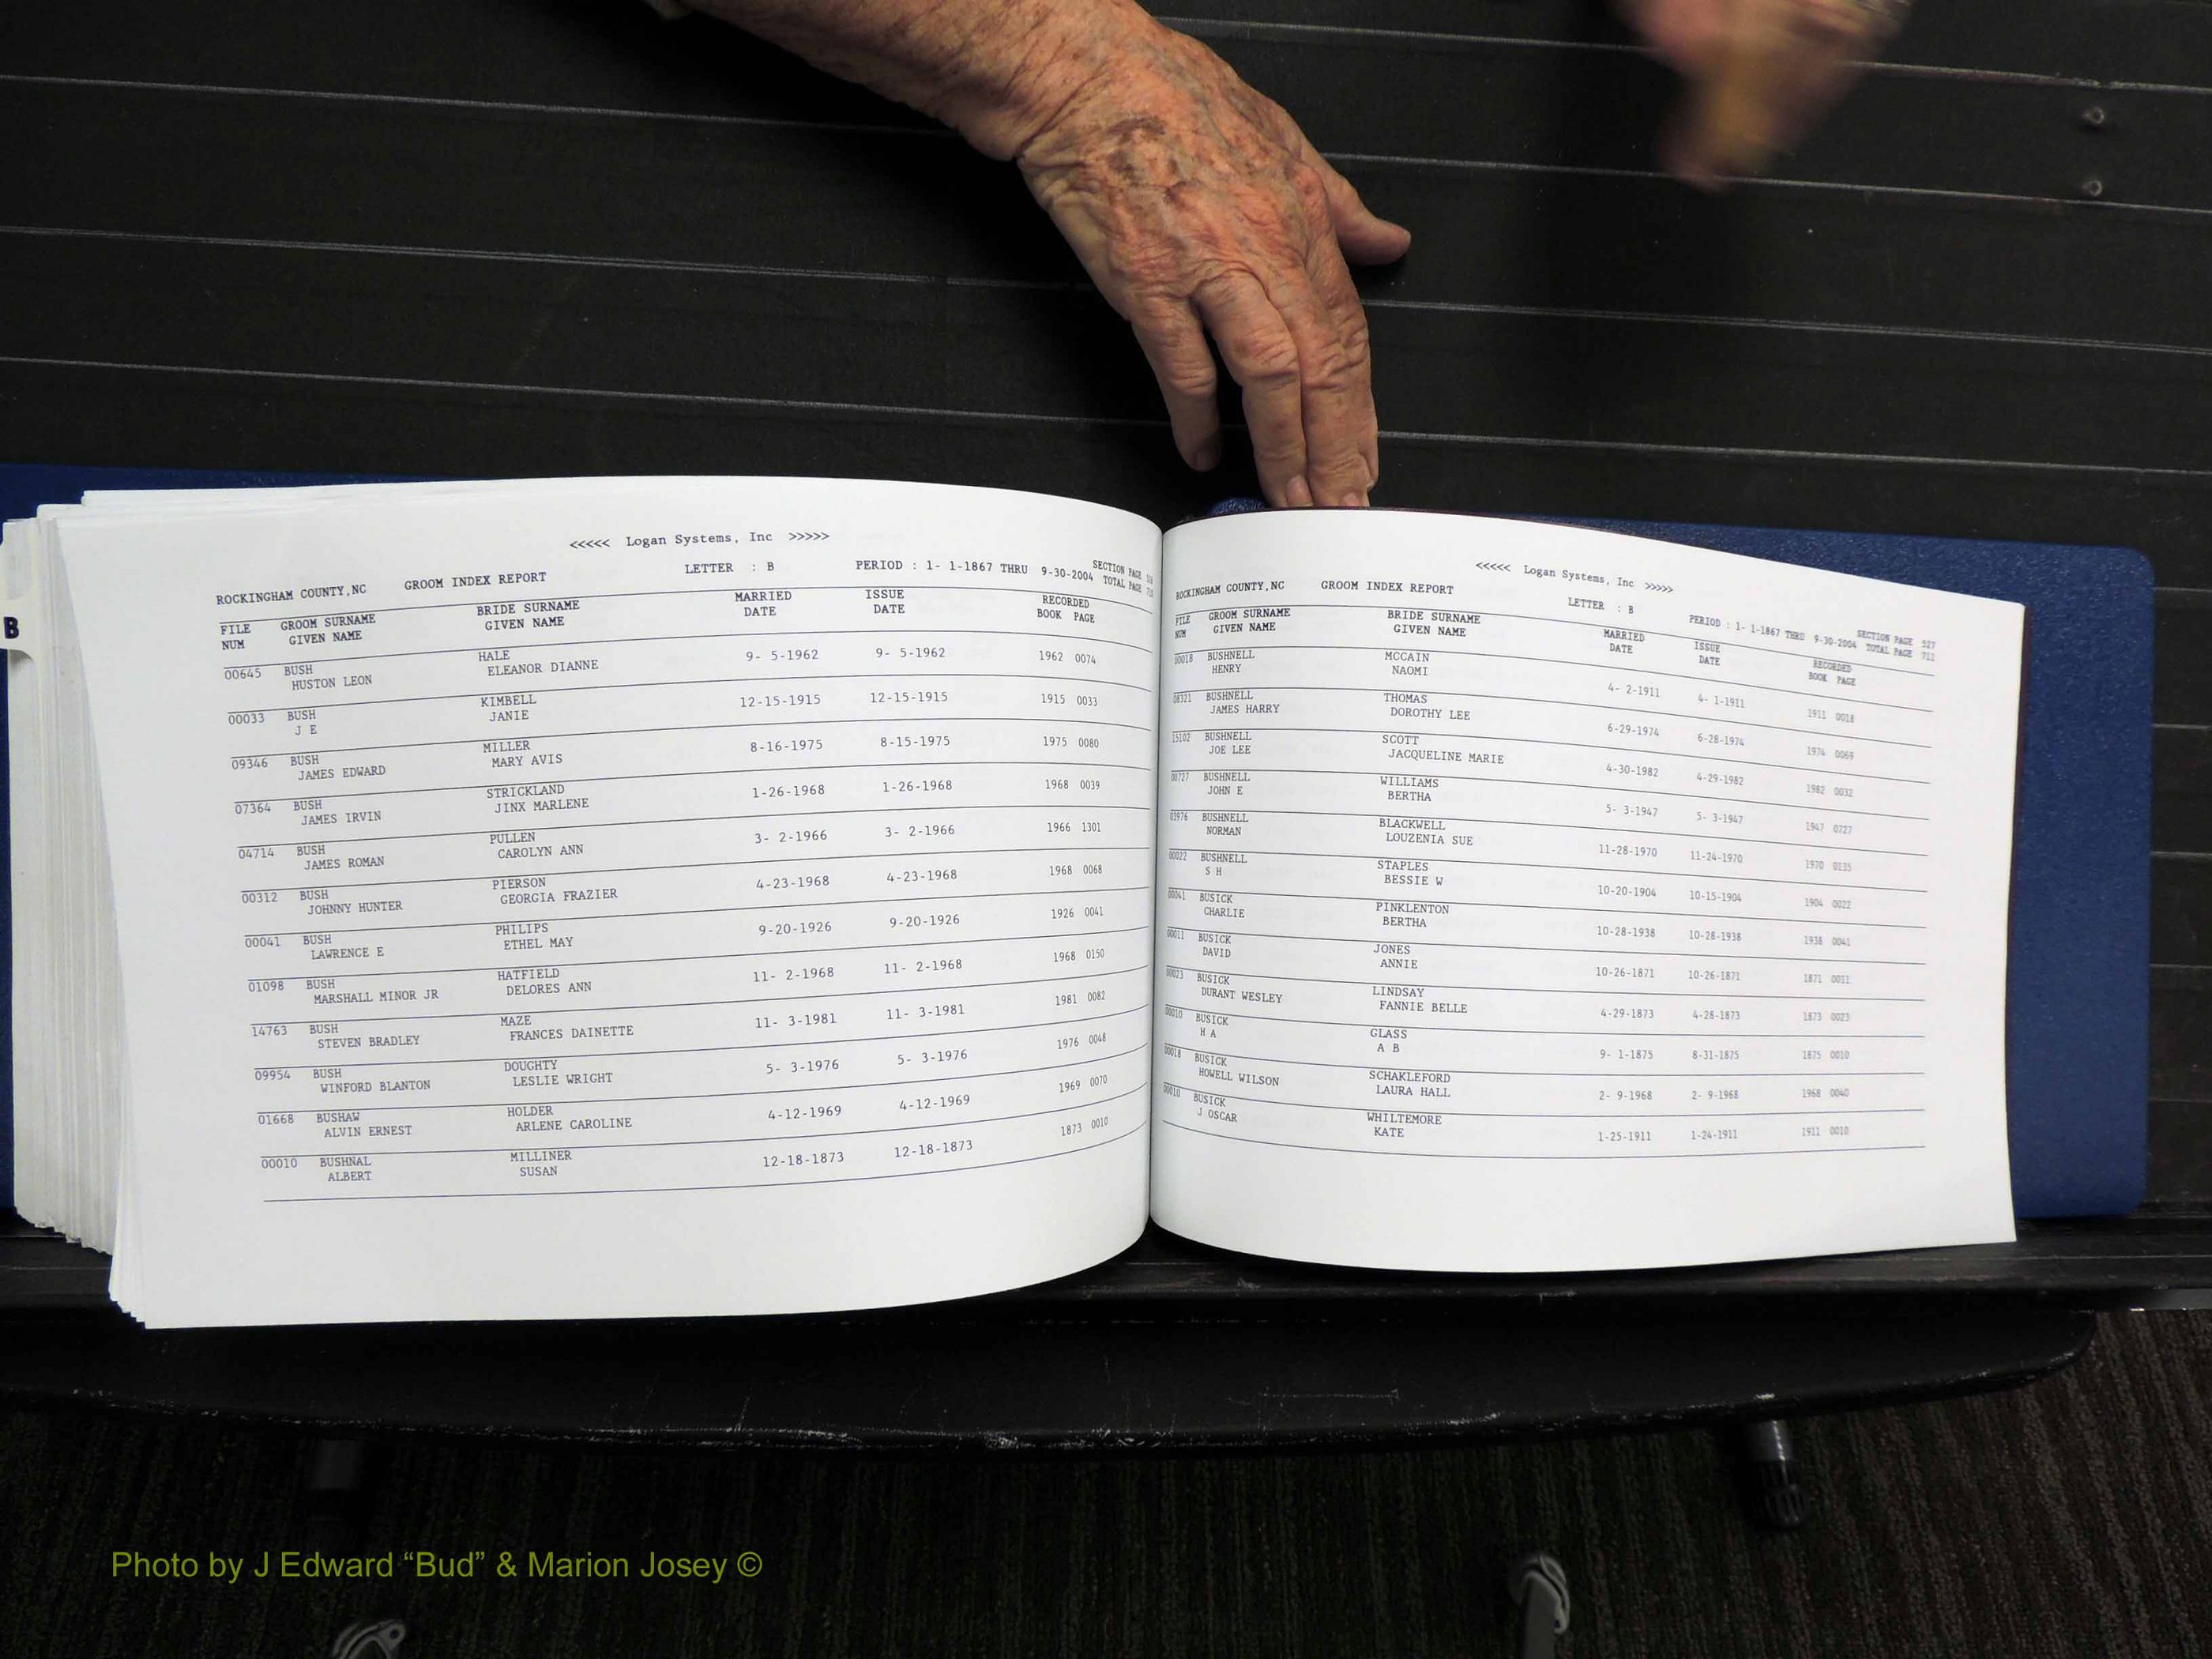 B
<<<<< Logan Systems, Inc >>>>>
ROCKINGHAM COUNTY,NC GROOM INDEX REPORT LETTER : B PERIOD : 1- 1-1867 THRU 9-30-2004 SECTION PAGE
TOTAL PAGE
FILE GROOM SURNAME BRIDE SURNAME MARRIED ISSUE RECORDED
NUM GIVEN NAME GIVEN NAME DATE DATE BOOK PAGE
00645 BUSH HALE 9- 5-1962 9- 5-1962 1962 0074
HUSTON LEON ELEANOR DIANNE
00033 BUSH KIMBELL 12-15-1915 12-15-1915 1915 0033
J E JANIE
09346 BUSH MILLER 8-16-1975 8-15-1975 1975 0080
JAMES EDWARD MARY AVIS
07364 BUSH STRICKLAND 1-26-1968 1-26-1968 1968 0039
JAMES IRVIN JINX MARLENE
04714 BUSH PULLEN 3- 2-1966 3- 2-1966 1966 1301
JAMES ROMAN CAROLYN ANN
00312 BUSH PIERSON 4-23-1968 4-23-1968 1968 0068
JOHNNY HUNTER GEORGIA FRAZIER
00041 BUSH PHILIPS 9-20-1926 9-20-1926 1926 0041
LAWRENCE E ETHEL MAY
01098 BUSH HATFIELD 11- 2-1968 11- 2-1968 1968 0150
MARSHALL MINOR JR DELORES ANN
14763 BUSH MAZE 11- 3-1981 11- 3-1981 1981 0082
STEVEN BRADLEY FRANCES DAINETTE
09954 BUSH DOUGHTY 5- 3-1976 5- 3-1976 1976 0048
WINFORD BLANTON LESLIE WRIGHT
01668 BUSHAW HOLDER 4-12-1969 4-12-1969 1969 0070
ALVIN ERNEST ARLENE CAROLINE
00010 BUSHNAL MILLINER 12-18-1873 12-18-1873 1873 0010
ALBERT SUSAN
<<<<< Logan Systems, Inc >>>>>
ROCKINGHAM COUNTY,NC GROOM INDEX REPORT LETTER : B PERIOD : 1- 1-1867 THRU 9-30-2004 SECTION PAGE 527
TOTAL PAGE
FILE GROOM SURNAME BRIDE SURNAME MARRIED ISSUE RECORDED
NUM GIVEN NAME GIVEN NAME DATE DATE BOOK PAGE
00018 BUSHNELL MCCAIN 4- 2-1911 4- 1-1911 1911 0018
HENRY NAOMI
08321 BUSHNELL THOMAS 6-29-1974 6-28-1974 1974 0069
JAMES HARRY DOROTHY LEE
15102 BUSHNELL SCOTT 4-30-1982 4-29-1982 1982 0032
JOE LEE JACQUELINE MARIE
00727 BUSHNELL WILLIAMS 5- 3-1947 5- 3-1947 1947 0727
JOHN E BERTHA
03976 BUSHNELL BLACKWELL 11-28-1970 11-24-1970 1970 0135
NORMAN LOUZENIA SUE
00022 BUSHNELL STAPLES 10-20-1904 10-15-1904 1904 0022
S H BESSIE W
00041 BUSICK PINKLENTON 10-28-1938 10-28-1938 1938 0041
CHARLIE BERTHA
00011 BUSICK JONES 10-26-1871 10-26-1871 1871 0011
DAVID ANNIE
00023 BUSICK LINDSAY 4-29-1873 4-28-1873 1873 0023
DURANT WESLEY FANNIE BELLE
00010 BUSICK GLASS 9- 1-1875 8-31-1875 1875 0010
H A A B
00018 BUSICK SCHAKLEFORD 2- 9-1968 2- 9-1968 1968 0040
HOWELL WILSON LAURA HALL
00010 BUSICK WHILTEMORE 1-25-1911 1-24-1911 1911 0010
J OSCAR KATE
Photo by J Edward “Bud” & Marion Josey ©